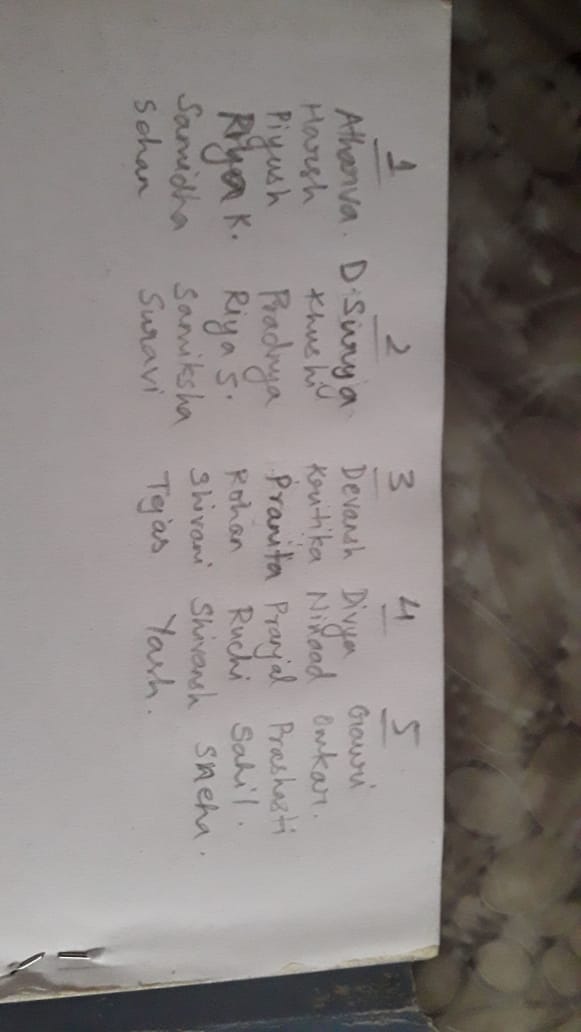 1 2 3 4 5
Atharva. D.Surya Devansh Divya Gauri
Harsh Khushi Krutika Ninaad Omkar.
Piyush Pradnya Pranita Pranjal Prashasti
Riya K. Riya S. Rohan Ruchi Sahil.
Samidha Samiksha Shivani Shivansh Sneha.
Sohan Suravi Tejas Yash.